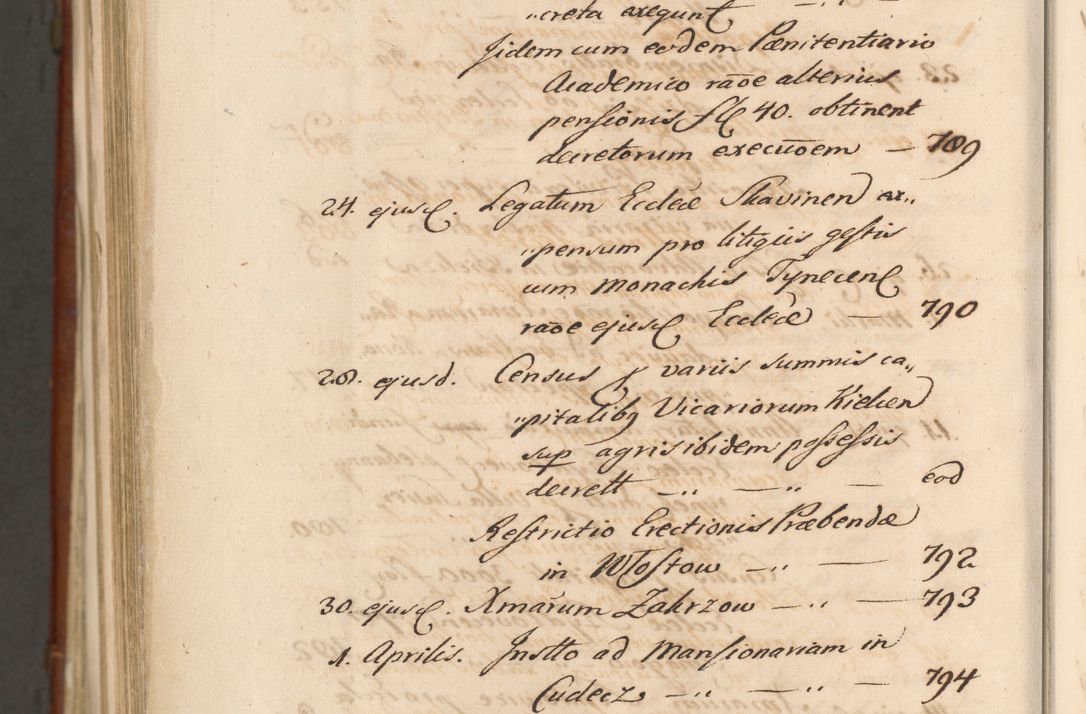 „creta exequunt — „ —
Jidem cum eodem Pœnitentiario
Academico raõe alterius
pensionis fl 40. obtinent
decretorum execuõem — 789
24. ejusd. Legatum Eccleæ Skavinen ex„
„pensum pro litigiis gestis
cum Monachis Tynecens
raõe ejusd Eccleæ — 790
28. ejusd. Census à variis summis ca„
„pitalibq Vicariorum Kielcen
sup agris ibidem possessis
decrett — „ — „ — eod
Restrictio Erectionis Præbendæ
in Włostow — „ — 792
30. ejusd. Xmarum Zakrzow — „ — 793
1. Aprilis. Instto ad Mansionariam in
Cudecz — „ — „ — 794